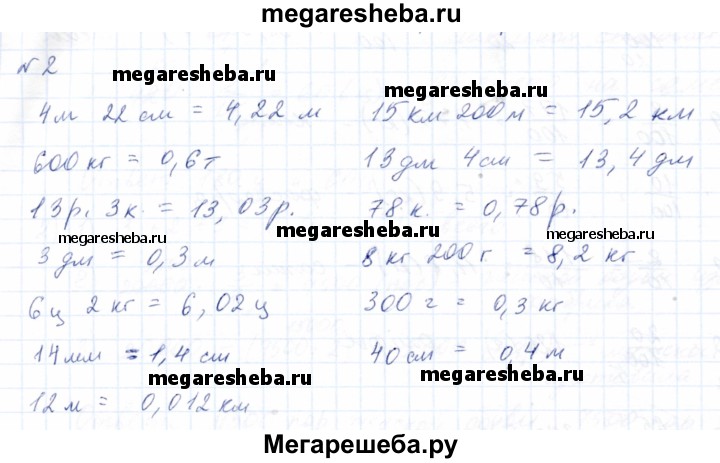 megaresheba.ru
№2
megaresheba.ru megaresheba.ru
4м 22 см = 4,22 м 15 км 200 м = 15,2 км
600 кг = 0,6 т 13 дм 4 см = 13,4 дм
13 р. 3 к. = 13,03 р. 78 к. = 0,78 р.
megaresheba.ru megaresheba.ru megaresheba.ru
3 дм = 0,3 м 8 кг 200 г = 8,2 кг
6 ц 2 кг = 6,02 ц 300 г = 0,3 кг
14 мм = 1,4 см 40 см = 0,4 м
megaresheba.ru megaresheba.ru
12 м = 0,012 км
Мегарешеба.ру